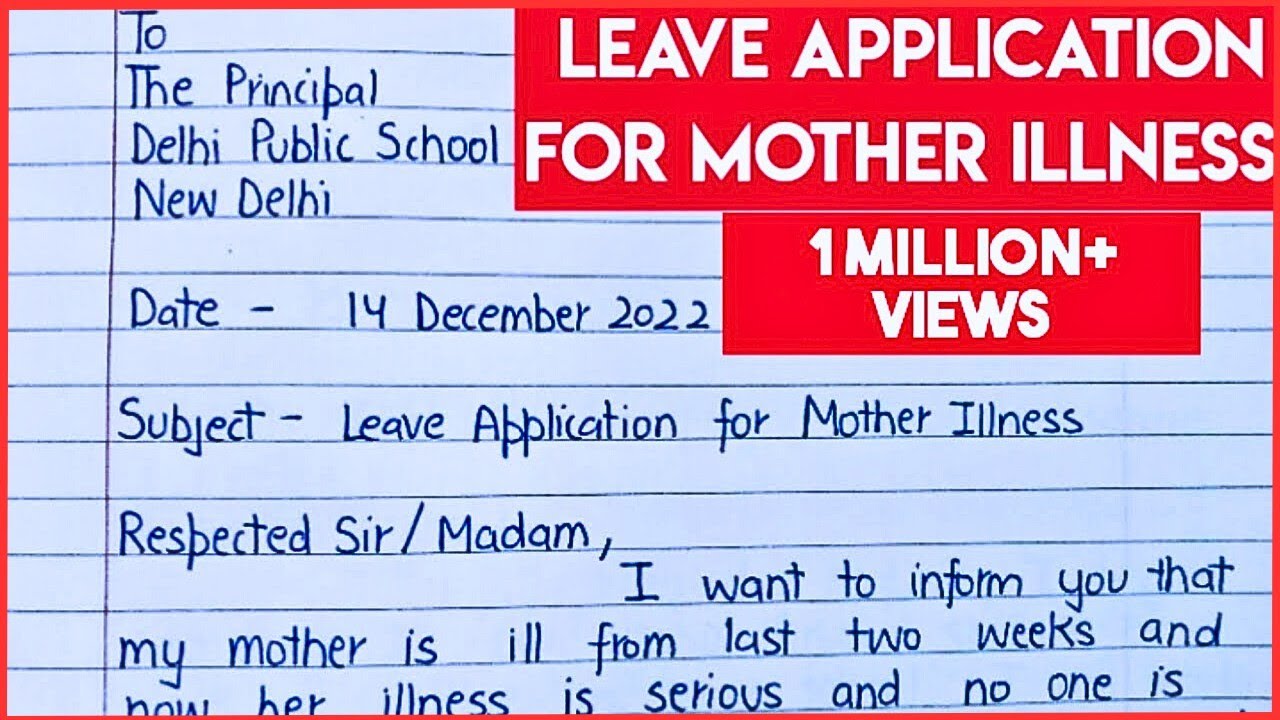 To
The Principal
Delhi Public School
New Delhi
LEAVE APPLICATION
FOR MOTHER ILLNESS
1 MILLION+
VIEWS
Date - 14 December 2022
Subject - Leave Application for Mother Illness
Respected Sir / Madam,
I want to inform you that
my mother is ill from last two weeks and
now her illness is serious and no one is